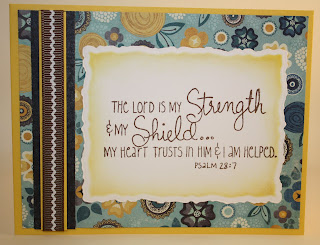 The Lord is my Strength
& my Shield...
my heart trusts in Him & I am helped.
Psalm 28:7